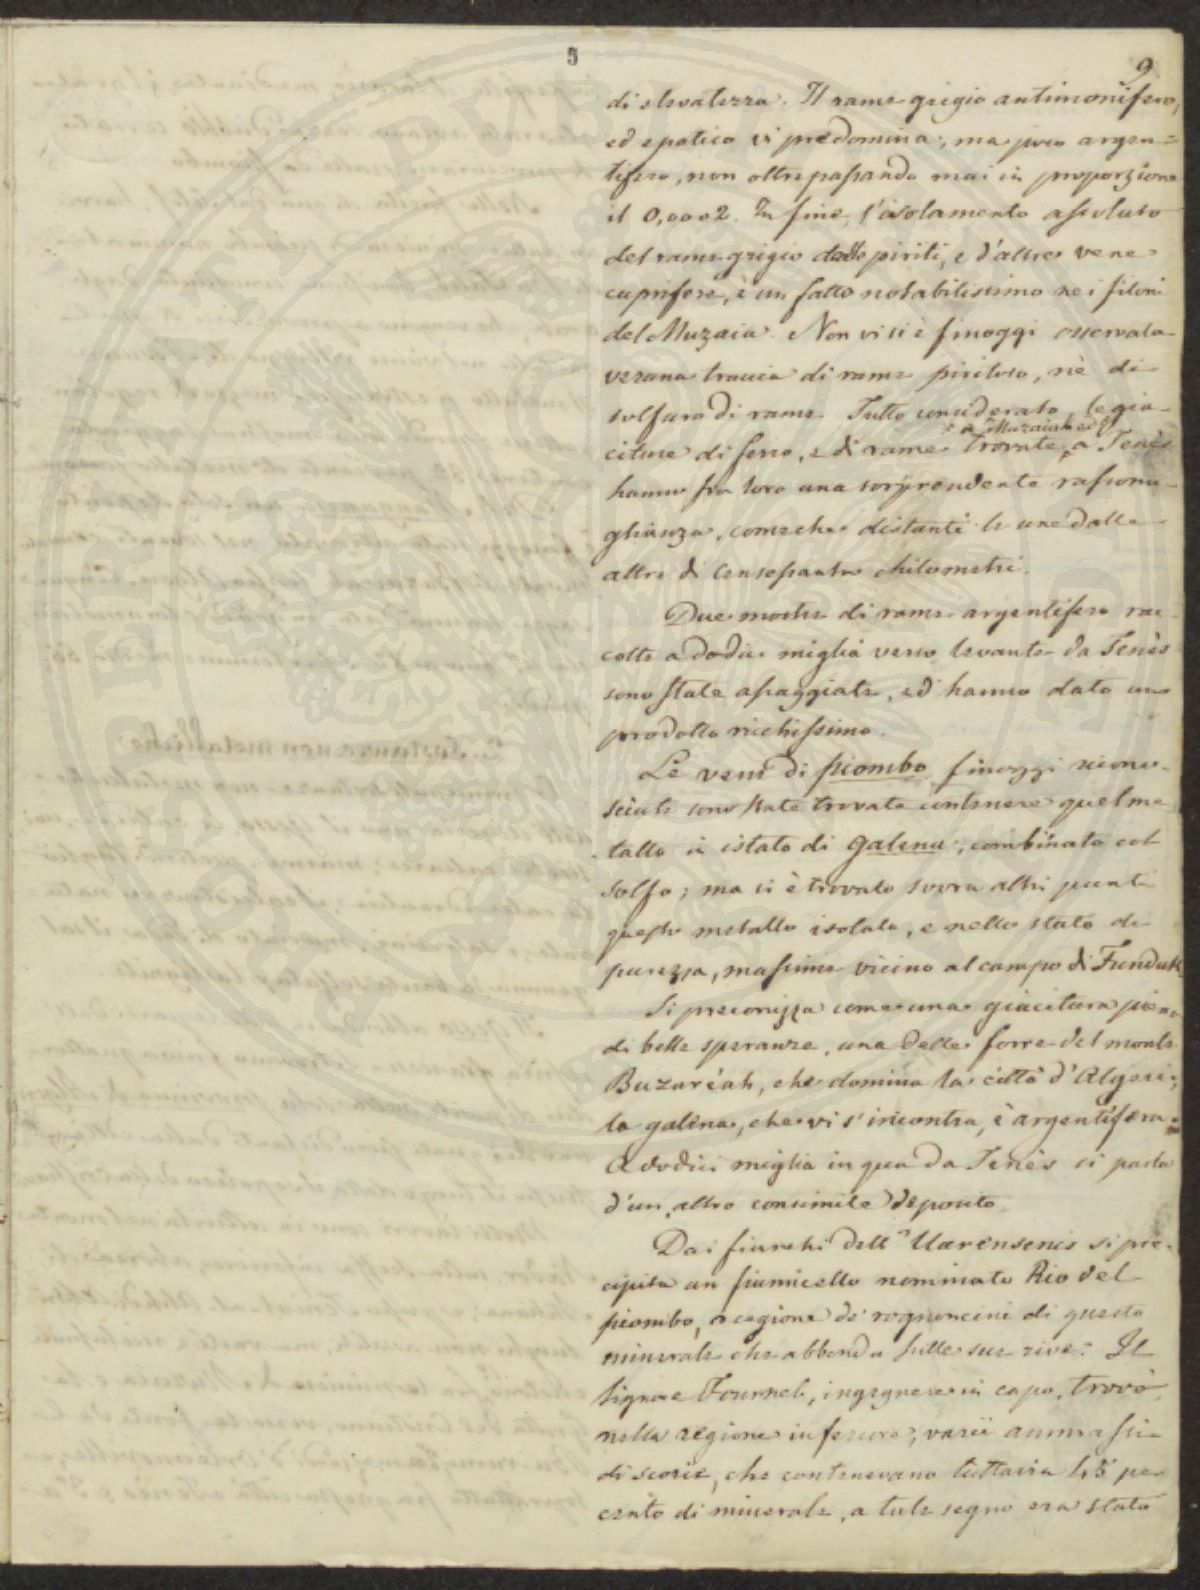 5
9
di elevatezza. Il rame grigio antimonifero,
ed epatico vi predomina; ma poco argen=
tifero, non oltrepassando mai in proporzione
il 0,0002. In fine, l'isolamento assoluto
del rame grigio dalle piriti, e d'altre vene
cuprifere, è un fatto notabilissimo nei filoni
del Muzaia. Non vi si è finoggi osservata
veruna traccia di rame piritoso, nè di
solfuro di rame. Tutto considerato, le gia-
a Muzaiah ed
citure di ferro, e di rame trovate, a Tenès
hanno fra loro una sorprendente rassomi-
glianza, comeche distanti le une dalle
altre di censessanta chilometri.
Due mostre di rame argentifero rac-
colte a dodici miglia verso levante da Tenès
sono state assaggiate, ed hanno dato un
prodotto richissimo.
Le vene di piombo finoggi ricono-
sciute sono state trovate contenere quel me
tallo in istato di galena, combinato col
solfo; ma si è trovato sovra altri punti
questo metallo isolato, e nello stato di
purezza, massime vicino al campo di Funduk.
Si preconizza come una giacitura piena
di belle speranze, una delle forre del monte
Buzaréah, che domina la città d'Algeri;
la galena, che vi s'incontra, è argentifera.
A dodici miglia in qua da Tenès si parla
d'un altro consimile deposito.
Dai fianchi dell'Uarensenis si pre-
cipita un fiumicello nominato Rio del
piombo, a cagione de' rognoncini di questo
minerale che abbonda sulle sue rive. Il
signor Fournel, ingegnere in capo, trovò,
nella regione inferiore, varii ammassi
di scorie, che contenevano tuttavia 45 per
cento di minerale, a tale segno era stato